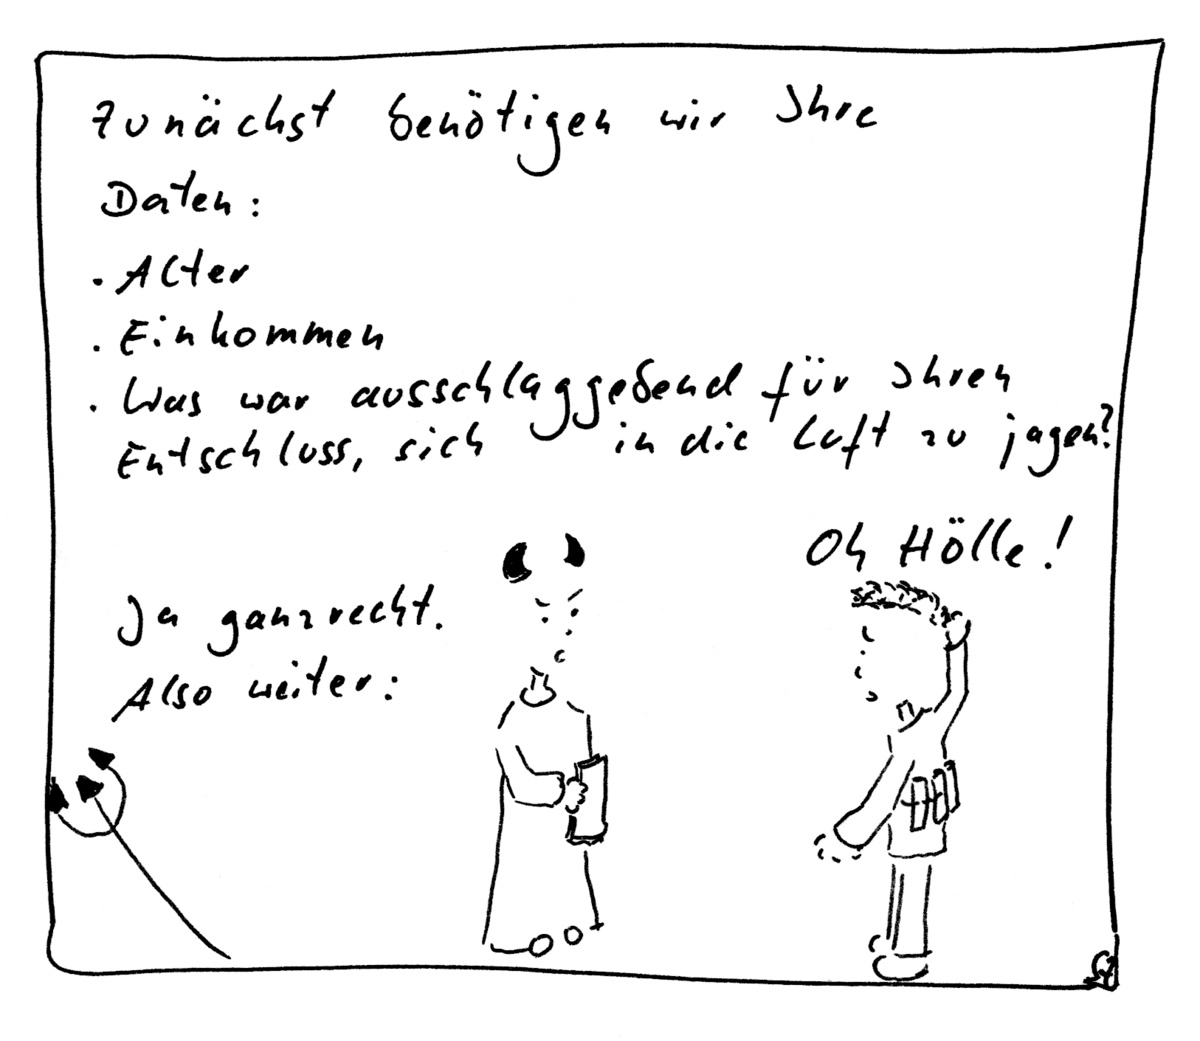 Zunächst benötigen wir Ihre
Daten:
. Alter
. Einkommen
. Was war ausschlaggebend für Ihren
Entschluss, sich in die Luft zu jagen?
Oh Hölle!
Ja ganzrecht.
Also weiter: